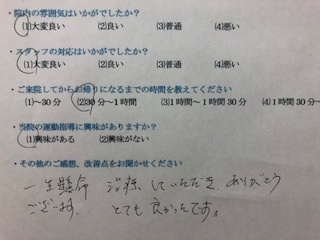 ・院内の雰囲気はいかがでしたか？
(1)大変良い (2)良い (3)普通 (4)悪い
・スタッフの対応はいかがでしたか？
(1)大変良い (2)良い (3)普通 (4)悪い
・ご来院してからお帰りになるまでの時間を教えてください
(1)～30分 (2)30分～1時間 (3)1時間～1時間30分 (4)1時間30分
・当院の運動指導に興味がありますか？
(1)興味がある (2)興味がない
・その他のご感想、改善点をお聞かせください
一生懸命 治療していただき、ありがとう
ございます。 とても良かったです。